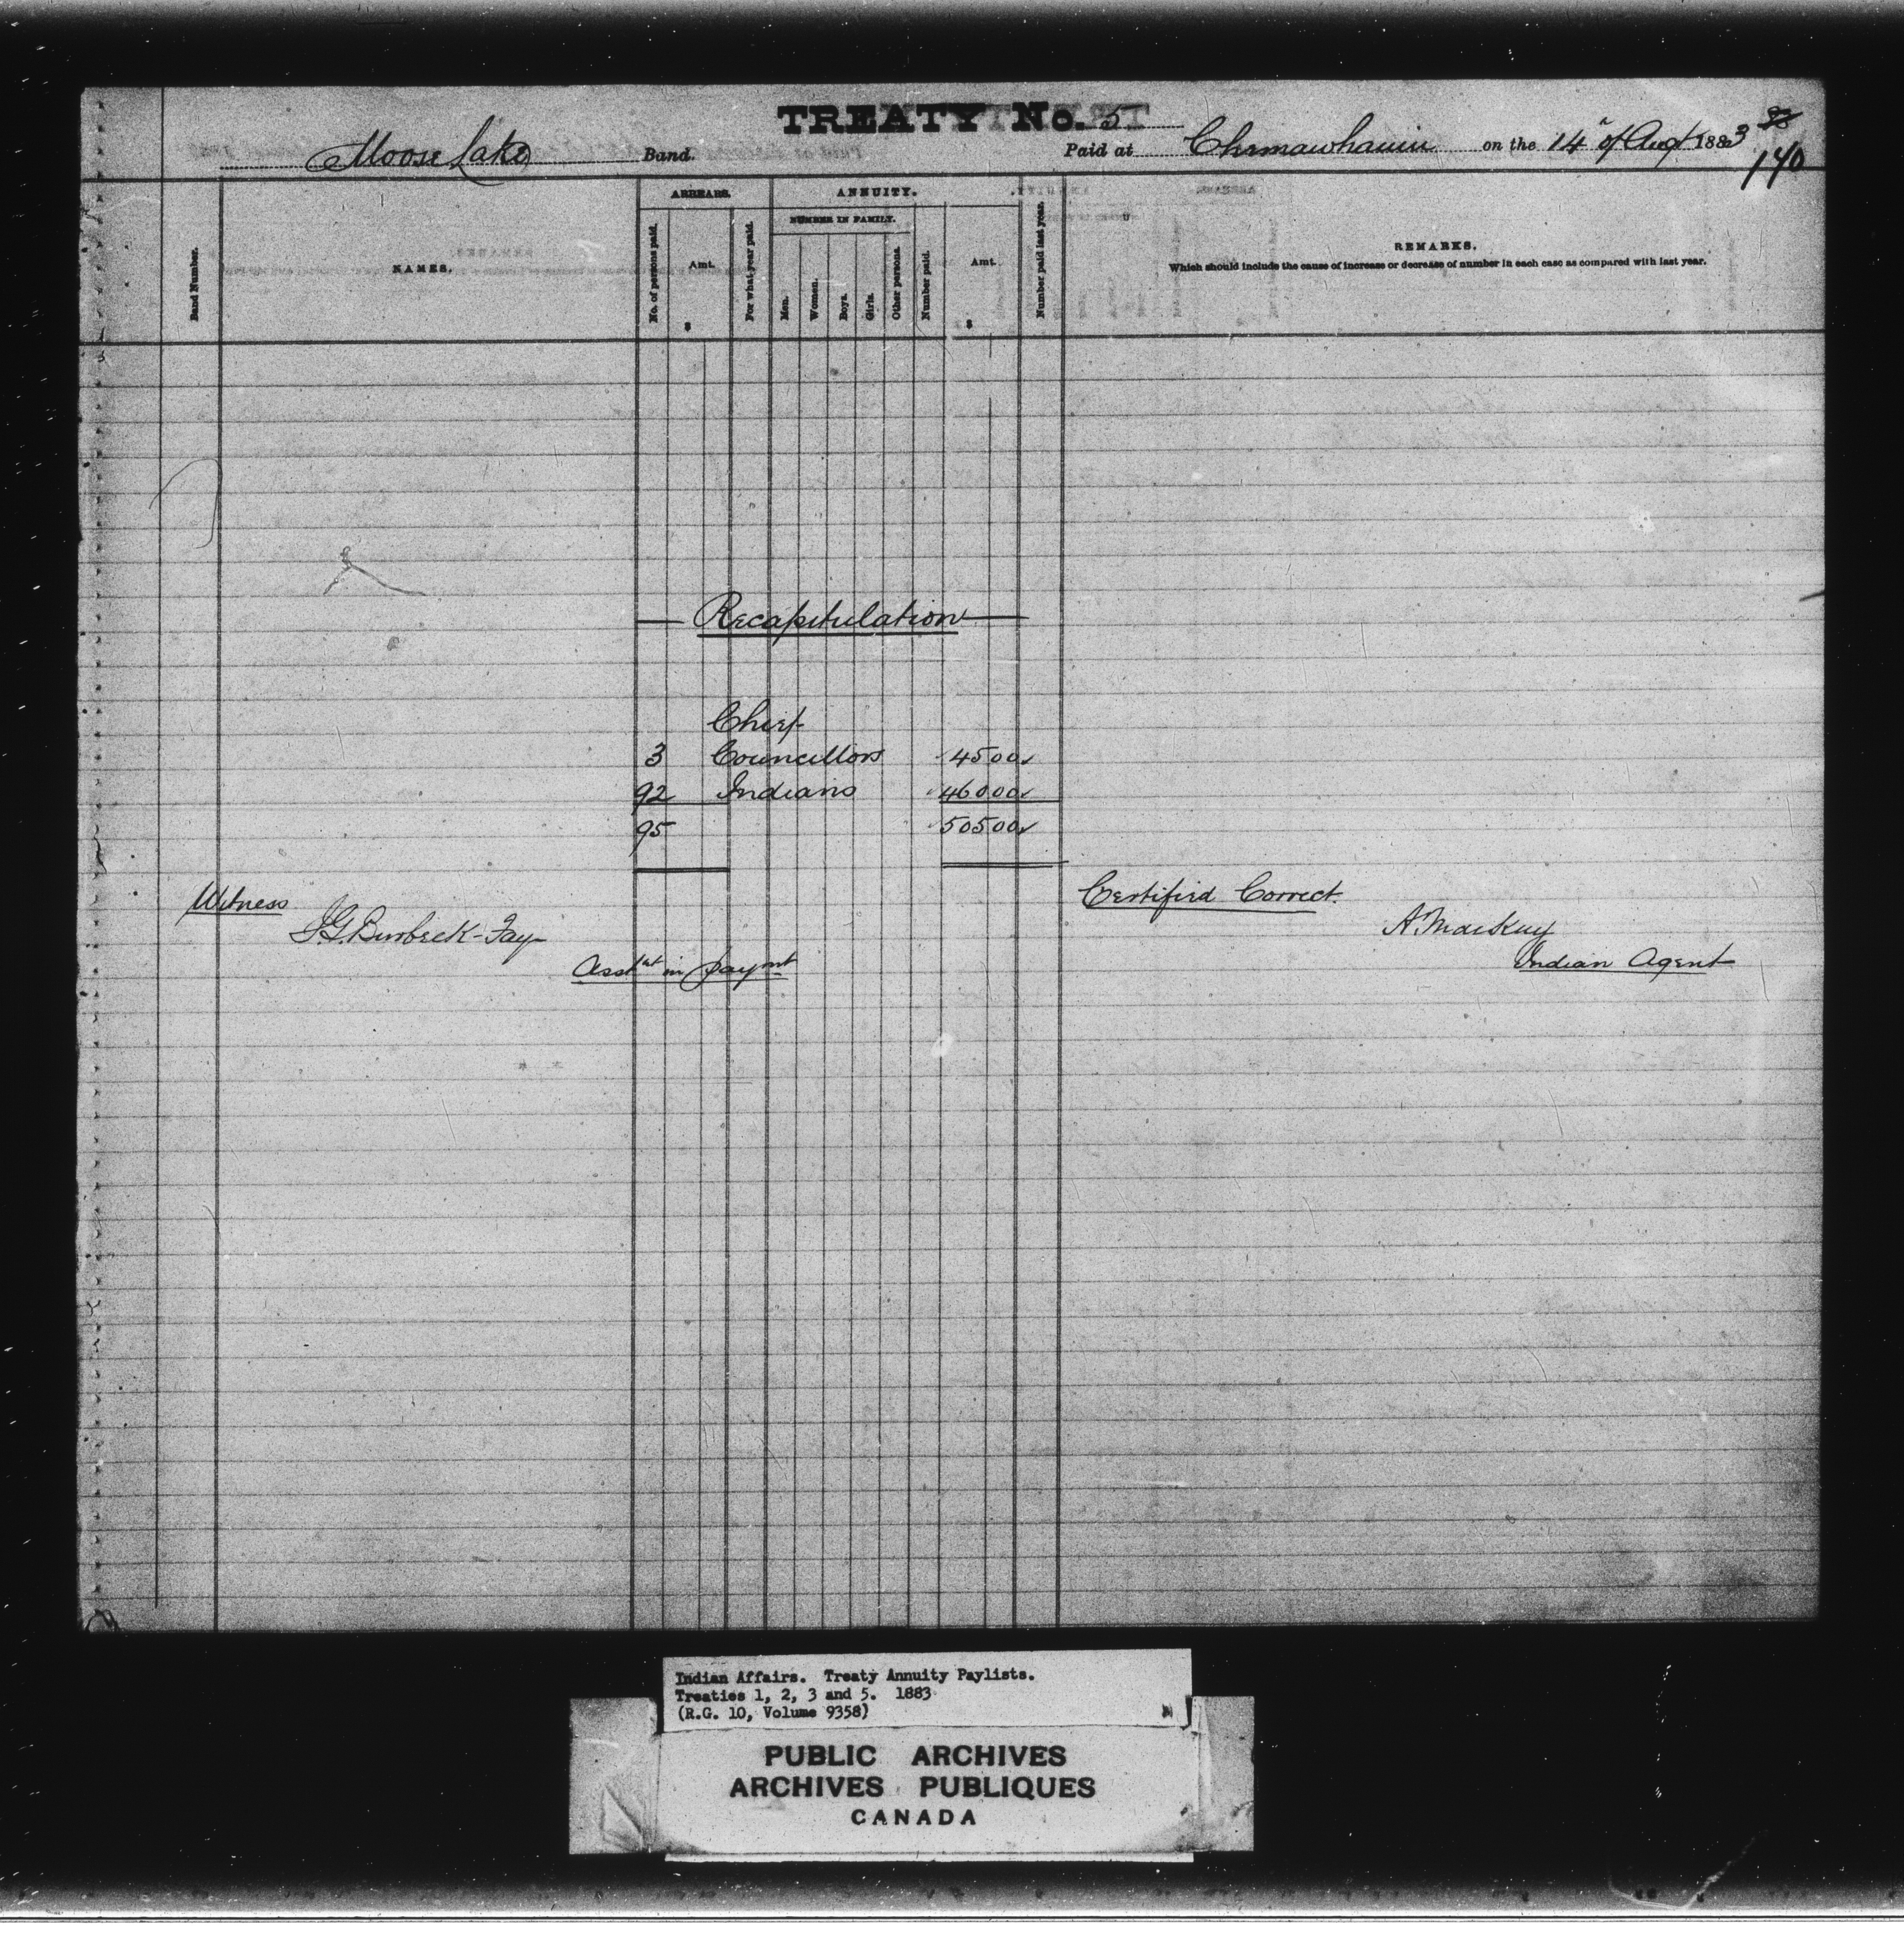 TREATY No. 5
Moose Lake Band. Paid at Chemawhawin on the 14" of Aug 1883
140
Band Number.
NAMES.
ARREARS.
No. of persons paid.
Amt.
$
For what year paid.
ANNUITY.
NUMBER IN FAMILY.
Men.
Women.
Boys.
Girls.
Other persons.
Number paid.
Amt.
$
Number paid last year.
REMARKS.
Which should include the cause of increase or decrease of number in each case as compared with last year.
Recapitulation
Chief
3 Councillors 45 00
92 Indians 460 00
95 505 00
Witness
J.G. Burbeck-Fay
Asst in paymt
Certified Correct.
A. MacKay
Indian Agent
Indian Affairs. Treaty Annuity Paylists.
Treaties 1, 2, 3 and 5. 1883
(R.G. 10, Volume 9358)
PUBLIC ARCHIVES
ARCHIVES PUBLIQUES
CANADA